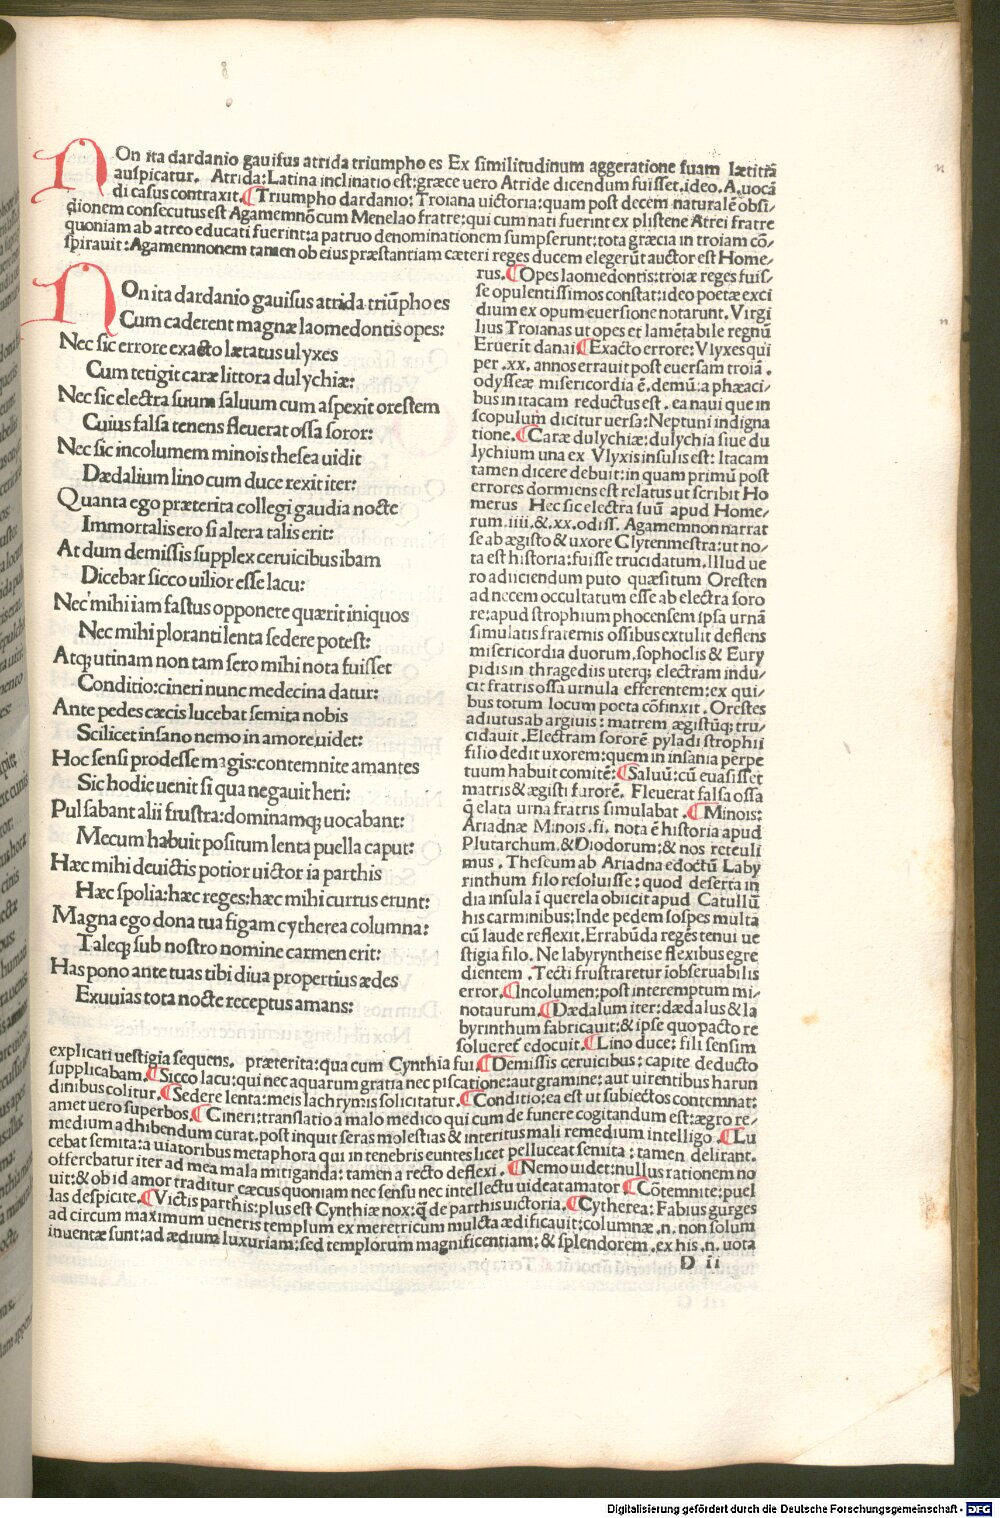 NOn ita dardanio gauisus atrida triumpho es Ex similitudinum aggeratione suam lætitiã
auspicatur. Atrida: Latina inclinatio est: græce uero Atride dicendum fuisset. ideo. A. uocã
di casus contraxit. ¶Triumpho dardanio: Troiana uictoria: quam post decem naturalẽ obsi/
dionem consecutus est Agamemnõ cum Menelao fratre: qui cum nati fuerint ex plistene Atrei fratre
quoniam ab atreo educati fuerint: a patruo denominationem sumpserunt: tota græcia in troiam cõ/
spirauit: Agamemnonem tamen ob eius præstantiam cæteri reges ducem elegerũt auctor est Home/
NOn ita dardanio gauisus atrida triũpho es
Cum caderent magnæ laomedontis opes:
Nec sic errore exacto lætatus ulyxes
Cum tetigit caræ littora dulychiæ:
Nec sic electra suum saluum cum aspexit orestem
Cuius falsa tenens fleuerat ossa soror:
Nec sic incolumem minois thesea uidit
Dædalium lino cum duce rexit iter:
Quanta ego præterita collegi gaudia nocte
Immortalis ero si altera talis erit:
At dum demissis supplex ceruicibus ibam
Dicebar sicco uilior esse lacu:
Nec mihi iam fastus opponere quærit iniquos
Nec mihi ploranti lenta sedere potest:
Atq; utinam non tam sero mihi nota fuisset
Conditio: cineri nunc medecina datur:
Ante pedes cæcis lucebat semita nobis
Scilicet insano nemo in amore uidet:
Hoc sensi prodesse magis: contemnite amantes
Sic hodie uenit si qua negauit heri:
Pulsabant alii frustra: dominamq; uocabant:
Mecum habuit positum lenta puella caput:
Hæc mihi deuictis potior uictoria parthis
Hæc spolia: hæc reges: hæc mihi currus erunt:
Magna ego dona tua figam cytherea columna:
Taleq; sub nostro nomine carmen erit:
Has pono ante tuas tibi diua propertius ædes
Exuuias tota nocte receptus amans:
rus. ¶Opes laomedontis: troiæ reges fuis/
se opulentissimos constat: ideo poetæ exci
dium ex opum euersione notarunt. Virgi
lius Troianas ut opes et lamẽtabile regnũ
Eruerit danai ¶Exacto errore: Vlyxes qui
per .xx. annos errauit post euersam troiã.
odysseæ misericordia ẽ. demũ: a phæaci/
bus in itacam reductus est. ea naui que in
scopulum dicitur uersa: Neptuni indigna
tione. ¶Caræ dulychiæ: dulychia siue du
lychium una ex Vlyxis insulis est: Itacam
tamen dicere debuit: in quam primũ post
errores dormiens est relatus ut scribit Ho
merus Hec sic electra suũ apud Home/
rum. iiii. &. xx. odiss. Agamemnon narrat
se ab ægisto & uxore Clytenmestra: ut no/
ta est historia: fuisse trucidatum. Illud ue
ro adiiciendum puto quæsitum Oresten
ad necem occultatum esse ab electra soro
re: apud strophium phocensem ipsa urnã
simulatis fraternis ossibus extulit deflens
misericordia duorum. sophoclis & Eury
pidis in thragediis uterq; electram indu/
cit fratris ossa urnula efferentem: ex qui/
bus totum locum poeta cõfinxit. Orestes
adiutus ab argiuis: matrem ægistũq; tru/
cidauit. Electram sororẽ pyladi strophii
filio dedit uxorem: quem in insania perpe
tuum habuit comitẽ: ¶Saluũ: cũ euasisset
matris & ægisti furorẽ. Fleuerat falsa ossa
q̃ elata urna fratris simulabat. ¶Minois:
Ariadnæ Minois. fi. nota ẽ historia apud
Plutarchum. & Diodorum: & nos retculi
mus. Theseum ab Ariadna edoctũ Laby
rinthum filo resoluisse: quod deserta in
dia insula ĩ querela obiicit apud Catullũ
his carminibus: Inde pedem sospes multa
cũ laude reflexit. Errabũda regẽs tenui ue
stigia filo. Ne labyryntheis e flexibus egre
dientem. Tecti frustraretur iobseruabilis
error. ¶Incolumen: post interemptum mi/
notaurum. ¶Dædalum iter: dædalus & la
byrinthum fabricauit: & ipse quo pacto re
soluerẽt edocuit. ¶Lino duce: fili sensim
explicati uestigia sequens. præterita: qua cum Cynthia fui ¶Demissis ceruicibus: capite deducto
supplicabam. ¶Sicco lacu: qui nec aquarum gratia nec piscatione: aut gramine: aut uirentibus harun
dinibus colitur. ¶Sedere lenta: meis lachrymis solicitatur. ¶Conditio: ea est ut subiectos contemnat:
amet uero superbos. ¶Cineri: translatio a malo medico qui cum de funere cogitandum est: ægro re/
medium adhibendum curat. post inquit seras molestias & interitus mali remedium intelligo. ¶Lu
cebat semita: a uiatoribus metaphora qui in tenebris euntes licet pelluceat semita: tamen delirant.
offerebatur iter ad mea mala mitiganda: tamen a recto deflexi. ¶Nemo uidet: nullus rationem no
uit: & ob id amor traditur cæcus quoniam nec sensu nec intellectu uideat amator ¶Cõtemnite: puel
las despicite. ¶Victis parthis: plus est Cynthiæ nox: q̃ de parthis uictoria. ¶Cytherea: Fabius gurges
ad circum maximum ueneris templum ex meretricum mulcta ædificauit: columnæ .n. non solum
inuentæ sunt: ad ædium luxuriam: sed templorum magnificentiam: & splendorem. ex his .n. uota
D ii
Digitalisierung gefördert durch die Deutsche Forschungsgemeinschaft - DFG